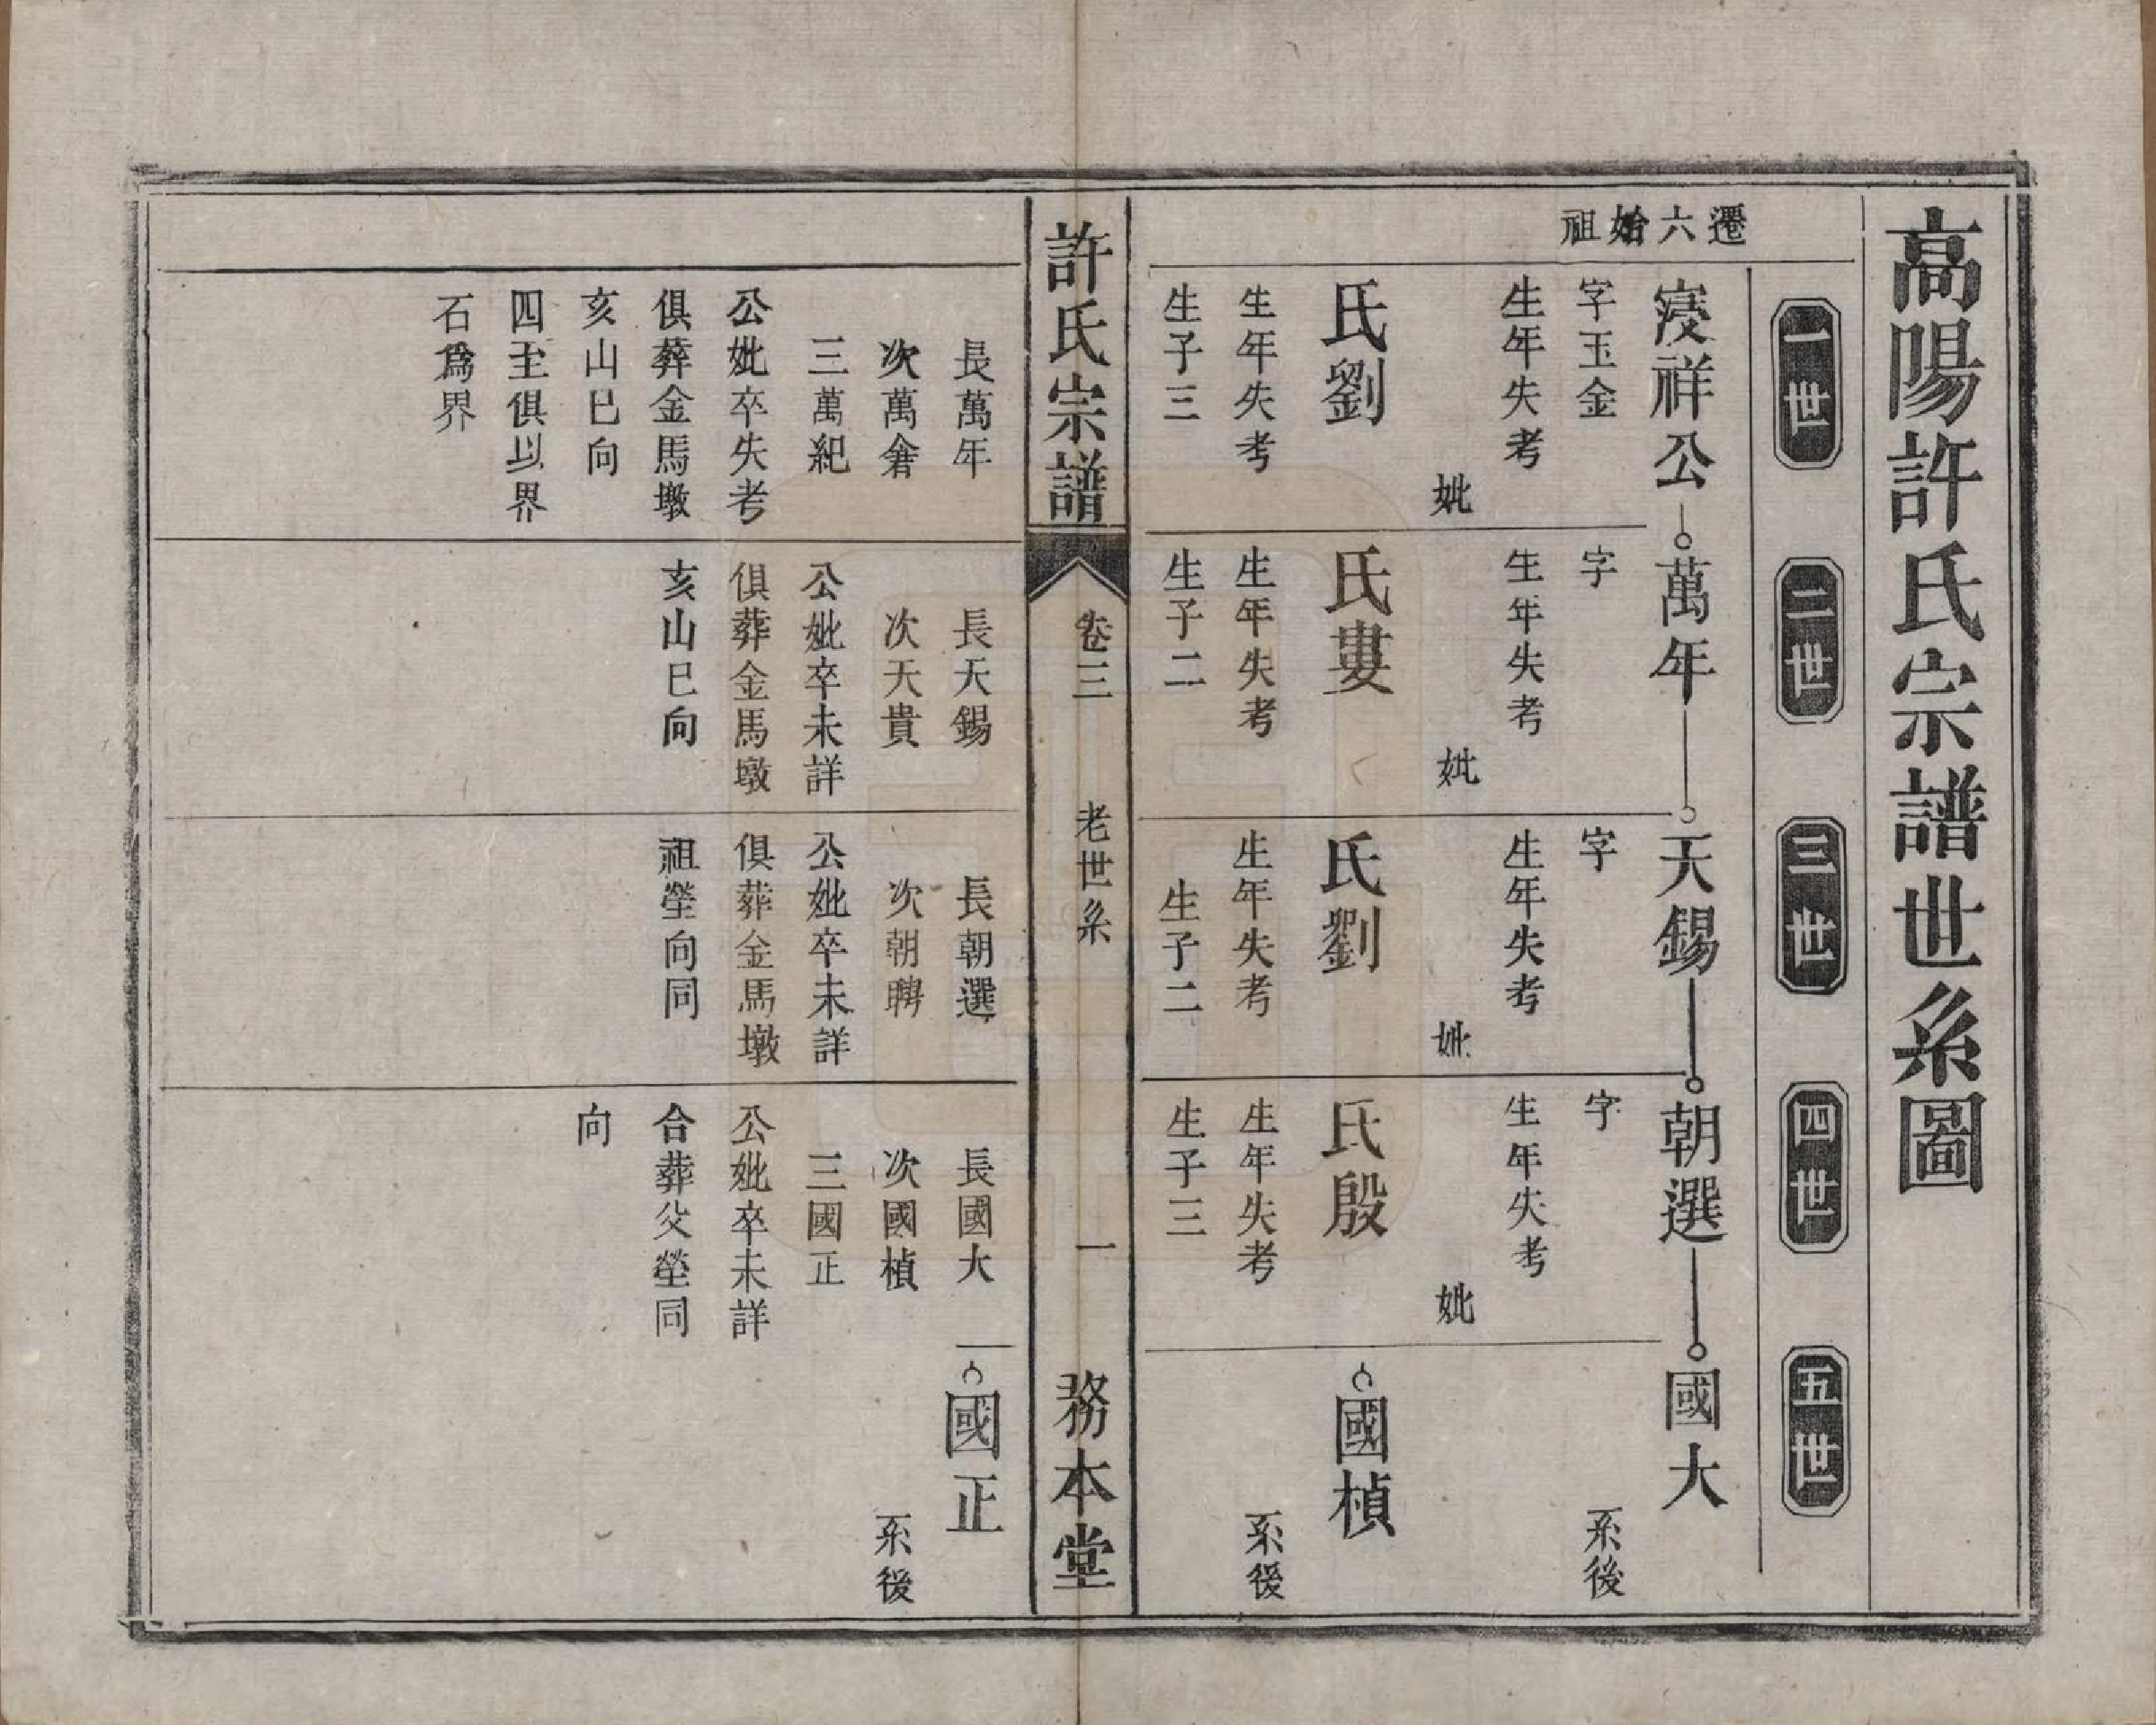 高陽許氏宗譜世系圖
一世
二世
三世
四世
五世
遷六始祖
祥公
字玉金
生年失考
妣
氏劉
生年失考
生子三
長萬年
次萬
三萬紀
公妣卒失考
俱葬金馬墩
亥山巳向
四至俱以界
石爲界
萬年
字
生年失考
妣
氏婁
生年失考
生子二
長天錫
次天貴
公妣卒未詳
俱葬金馬墩
亥山巳向
天錫
字
生年失考
妣
氏劉
生年失考
生子二
長朝選
次朝聘
公妣卒未詳
俱葬金馬墩
祖塋向同
朝選
字
生年失考
妣
氏殷
生年失考
生子三
長國大
次國楨
三國正
公妣卒未詳
合葬父塋同
向
國大
系後
國楨
系後
國正
系後
許氏宗譜
卷三
老世系
一
務本堂